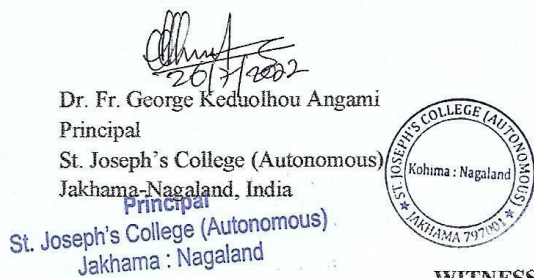 26/7/2022
Dr. Fr. George Keduolhou Angami
Principal
St. Joseph's College (Autonomous)
Jakhama-Nagaland, India
Principal
St. Joseph's College (Autonomous)
Jakhama : Nagaland
ST. JOSEPH'S COLLEGE (AUTONOMOUS)
Kohima : Nagaland
★ JAKHAMA 797001 ★
WITNESS